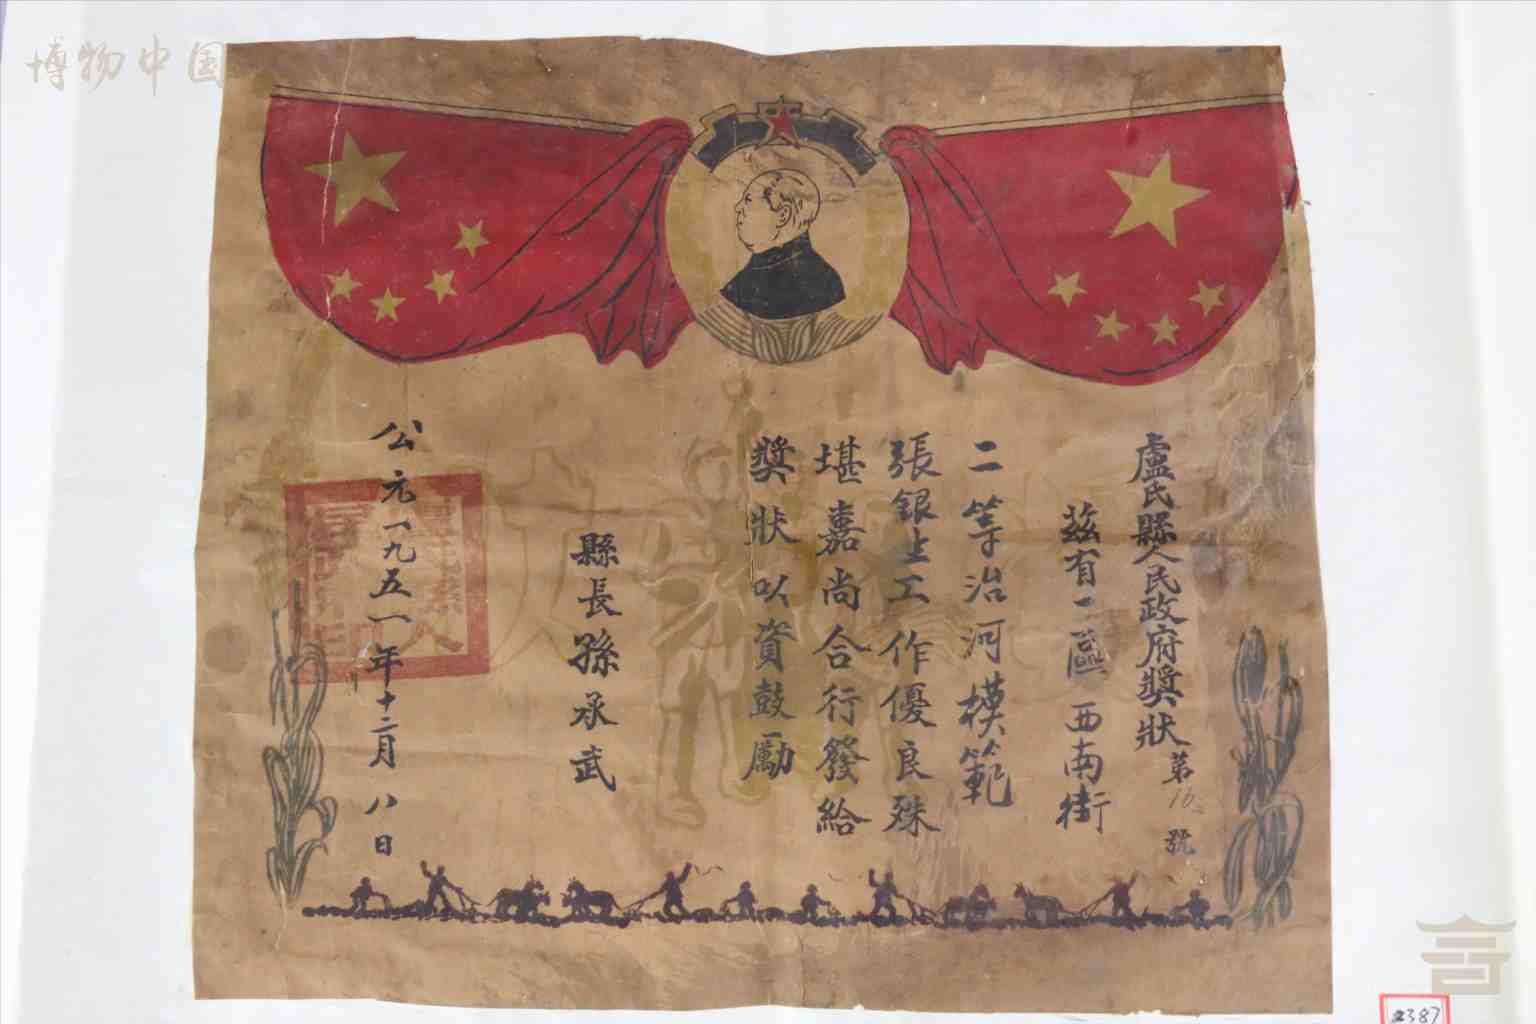 博物中国
盧氏縣人民政府奬狀 第16號
茲有一區 西南街
二等治河模範
張銀上工作優良殊
堪嘉尚合行發給
奬狀以資鼓勵
縣長孫承武
公元一九五一年十二月八日
2387